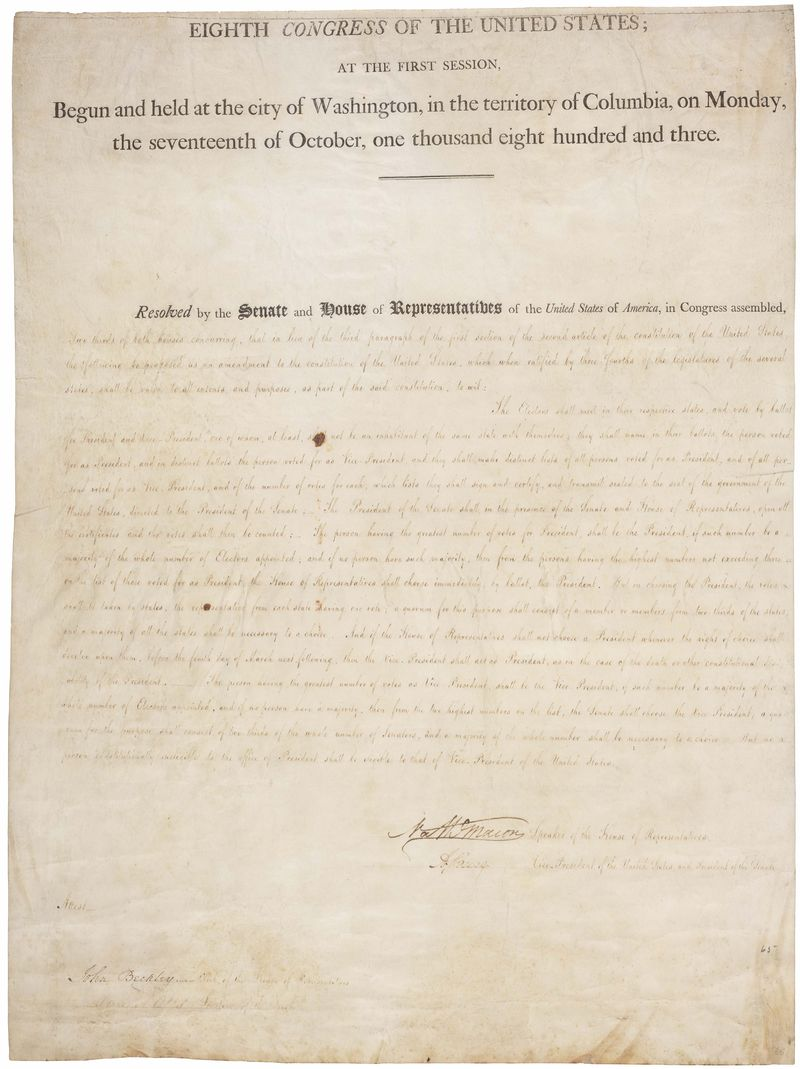 EIGHTH CONGRESS OF THE UNITED STATES;
AT THE FIRST SESSION,
Begun and held at the city of Washington, in the territory of Columbia, on Monday,
the seventeenth of October, one thousand eight hundred and three.
Resolved by the Senate and House of Representatives of the United States of America, in Congress assembled,
Two thirds of both houses concurring, that in lieu of the third paragraph of the first section of the second article of the constitution of the United States,
the following be proposed as an amendment to the constitution of the United States, which when ratified by three fourths of the legislatures of the several
states, shall be valid to all intents and purposes, as part of the said constitution, to wit:
The Electors shall meet in their respective states, and vote by ballot
for President and Vice-President, one of whom, at least, shall not be an inhabitant of the same state with themselves; they shall name in their ballots, the person voted
for as President, and in distinct ballots the person voted for as Vice-President, and they shall make distinct lists of all persons voted for as President, and of all per-
sons voted for as Vice-President, and of the number of votes for each, which lists they shall sign and certify, and transmit sealed to the seat of the government of the
United States, directed to the President of the Senate;— The President of the Senate shall, in the presence of the Senate and House of Representatives, open all
the certificates and the votes shall then be counted;— The person having the greatest number of votes for President, shall be the President, if such number be a
majority of the whole number of Electors appointed; and if no person have such majority, then from the persons having the highest numbers not exceeding three
on the list of those voted for as President, the House of Representatives shall choose immediately, by ballot, the President. But in choosing the President, the votes
shall be taken by states, the representation from each state having one vote; a quorum for this purpose shall consist of a member or members from two-thirds of the states,
and a majority of all the states shall be necessary to a choice. And if the House of Representatives shall not choose a President whenever the right of choice shall
devolve upon them, before the fourth day of March next following, then the Vice-President shall act as President, as in the case of the death or other constitutional dis-
ability of the President. The person having the greatest number of votes as Vice-President, shall be the Vice-President, if such number be a majority of the
whole number of Electors appointed, and if no person have a majority, then from the two highest numbers on the list, the Senate shall choose the Vice-President; a quo-
rum for the purpose shall consist of two-thirds of the whole number of Senators, and a majority of the whole number shall be necessary to a choice. But no
person constitutionally ineligible to the office of President shall be eligible to that of Vice-President of the United States.
Nathl Macon Speaker of the House of Representatives.
Vice-President of the United States, and President of the Senate
Attest
John Beckley Clerk of the House of Representatives
65